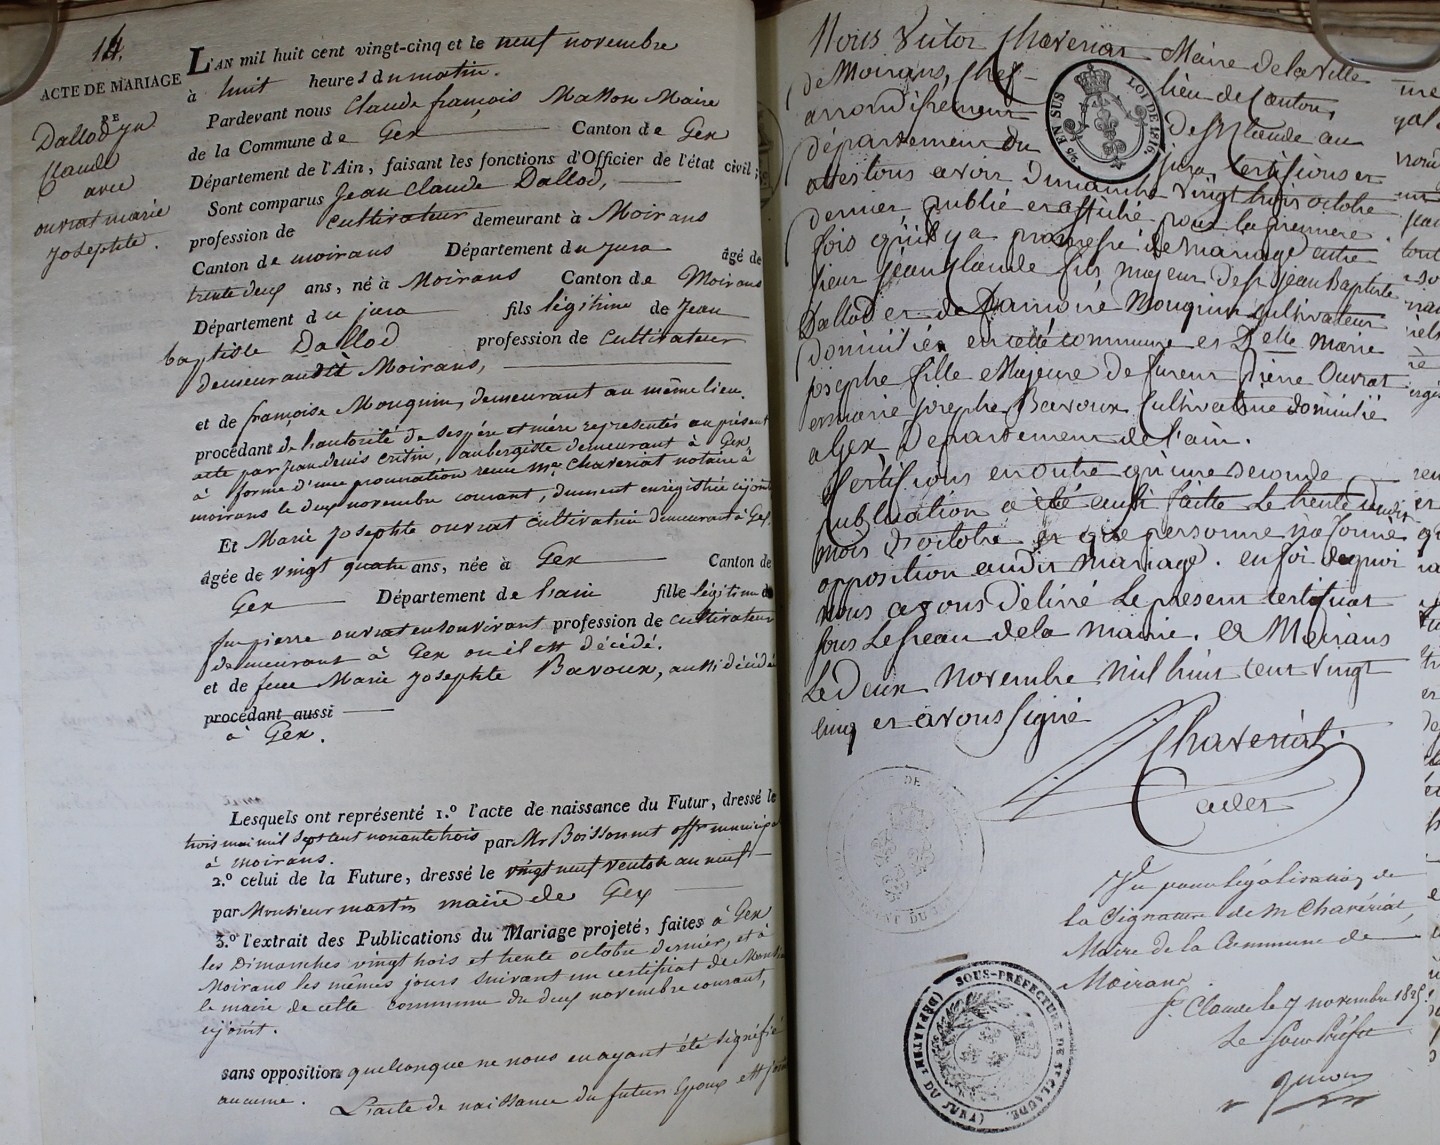 14.
ACTE DE MARIAGE
RE
Dallod jn
Claude
avec
ouvrat marie
Josephte.
L'AN mil huit cent vingt-cinq et le neuf novembre
à huit heures du matin.
Pardevant nous Claude françois Masson Maire
de la Commune de Gex Canton de Gex
Département de l'Ain, faisant les fonctions d'Officier de l'état civil ;
Sont comparus Jean Claude Dallod,
profession de cultivateur demeurant à Moirans
Canton de moirans Département du jura âgé de
trente deux ans, né à Moirans Canton de Moirans
Département du jura fils légitime de Jean
baptiste Dallod profession de Cultivateur
demeurant à Moirans,
et de françoise Mouquin, demeurant au même lieu.
procédant de l'autorité de ses père et mère représentés au présent
acte par Jean denis , aubergiste demeurant à Gex,
à forme d'une procuration reçue Me Chaveriat notaire à
moirans le deux novembre courant, dument enregistrée cijointe
Et Marie Josephte ouvrat cultivatrice demeurant à Gex.
âgée de vingt quatre ans, née à Gex Canton de
Gex Département de l'ain fille légitime de
fu pierre ouvrat en son vivant profession de cultivateur
demeurant à Gex ou il est décédé.
et de feue Marie Josephte Bavoux, aussi décédée
procédant aussi
à Gex.
Lesquels ont représenté 1.º l'acte de naissance du Futur, dressé le
trois mai mil sept cent nonante trois par Mr Boissonnet offr municipal
à moirans.
2.º celui de la Future, dressé le vingt neuf ventose an neuf
par Monsieur martin maire de Gex
3.º l'extrait des Publications du Mariage projeté, faites à Gex
les Dimanches vingt trois et trente octobre dernier, et à
Moirans les mêmes jours suivant un certificat de Monsieur
le maire de cette commune du deux novembre courant,
cijoint.
sans opposition quelconque ne nous en ayant été signifié
aucune. L'acte de naissance du futur Epoux est joint
Nous Victor Chaveriat Maire de la ville
de Moirans, Chef-lieu de Canton,
arrondissement de St Claude au
département du jura, Certifions et
attestons avoir Dimanche vingt trois octobre
dernier publié et affiché pour la premiere
fois qu'il y a promesse de mariage entre
sieur Jean Claude fils majeur de Sr Jean Baptiste
Dallod et de francoise Mouquin cultivateur
domiciliés en cette commune et Delle marie
josephe fille Majeure de furent Pierre Ouvrat
et marie josephe Bavoux Cultivatrice domicilié
a Gex Departement de l'ain.
Certifions en outre qu'une seconde
publication a été aussi faitte le trente dudit
mois d'octobre et que personne na formé
opposition audit mariage. en foi de quoi
nous avons délivré le present certificat
sous le sceau de la mairie. a Moirans
le deux novembre mil huit cent vingt
cinq et avons signé
Chaveriat.
EN SUS
LOI DE 1816.
Vu pour légalisation de
la signature de M Chavériat,
Maire de la Commune de
Moirans
St Claude le 7 novembre 1825.
Le Sous Préfet
SOUS-PRÉFECTURE DE ST CLAUDE.
(DÉPARTEMT DU JURA)